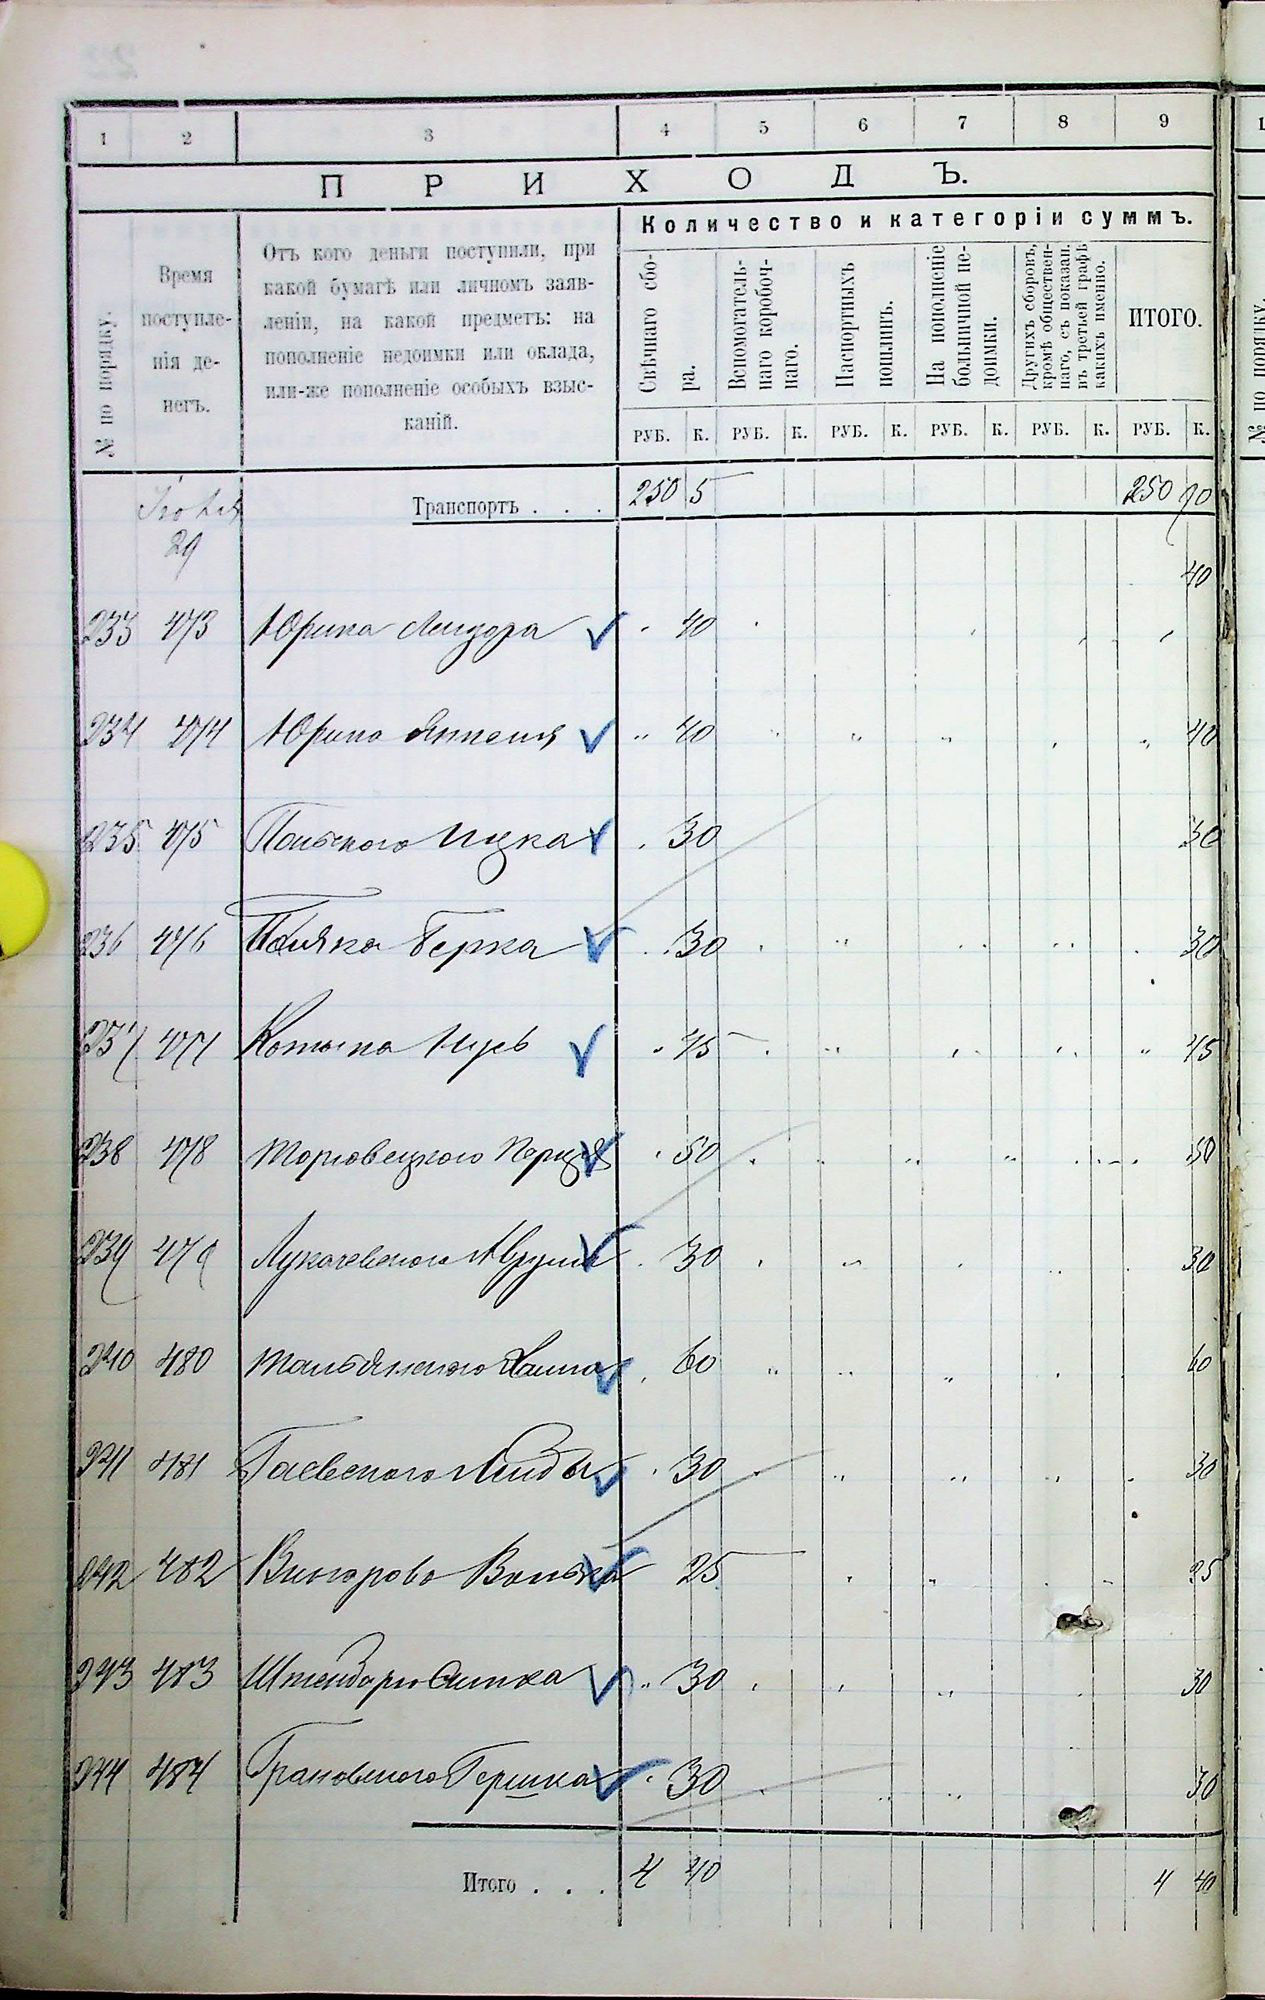 1 2 3 4 5 6 7 8 9
ПРИХОДЪ.
№ по порядку.
Время
поступле-
нія де-
негъ.
Отъ кого деньги поступили, при
какой бумагѣ или личномъ заяв-
леніи, на какой предметъ: на
пополненіе недоимки или оклада,
или-же пополненіе особыхъ взыс-
каній.
Количество и категоріи суммъ.
Свѣчнаго сбо-
ра.
Вспомогатель-
наго коробоч-
наго.
Паспортныхъ
пошлинъ.
На пополненіе
больничной не-
доимки.
Другихъ сборовъ,
кромѣ обществен-
наго, съ показан.
въ третьей графѣ
какихъ именно.
ИТОГО.
РУБ. К. РУБ. К. РУБ. К. РУБ. К. РУБ. К. РУБ. К.
Транспортъ . . . 250 5 250
29
40
233 473 Юрина 40
234 474 Юрина 40 40
235 475 Польского Ицка 30 30
236 476 Поляка Берка 30 30
237 477 45 45
238 478 50 50
239 479 Лукачевского Аврума 30 30
240 480 Тальянского Хаима 60 60
241 481 Гаевского 30 30
242 482 Винарова Волька 25 25
243 483 30 30
244 484 Грановского Гершка 30 30
Итого . . . 4 40 4 40
№ по порядку.